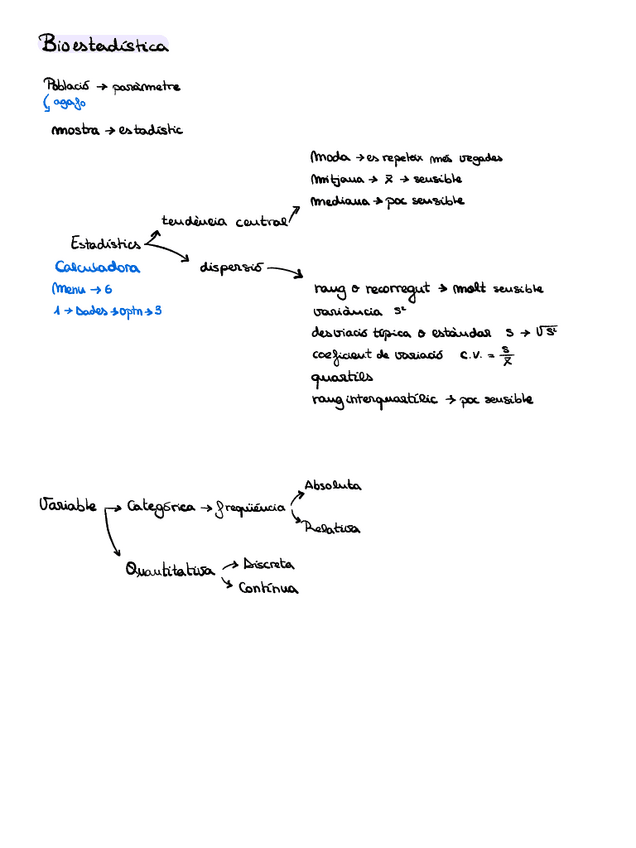 Bioestadística
Població → paràmetre
agafo
mostra → estadístic
moda → es repeteix més vegades
mitjana → x̄ → sensible
mediana → poc sensible
tendència central
Estadístics
dispersió
Calculadora
Menu → 6
1 → Dades → optn → 3
rang o recorregut → molt sensible
variància s²
desviació típica o estàndar s → √s²
coeficient de variació C.V. = s/x̄
quartils
rang interquartílic → poc sensible
Absoluta
Variable → Categòrica → freqüència
Relativa
Quantitativa → Discreta
→ Contínua